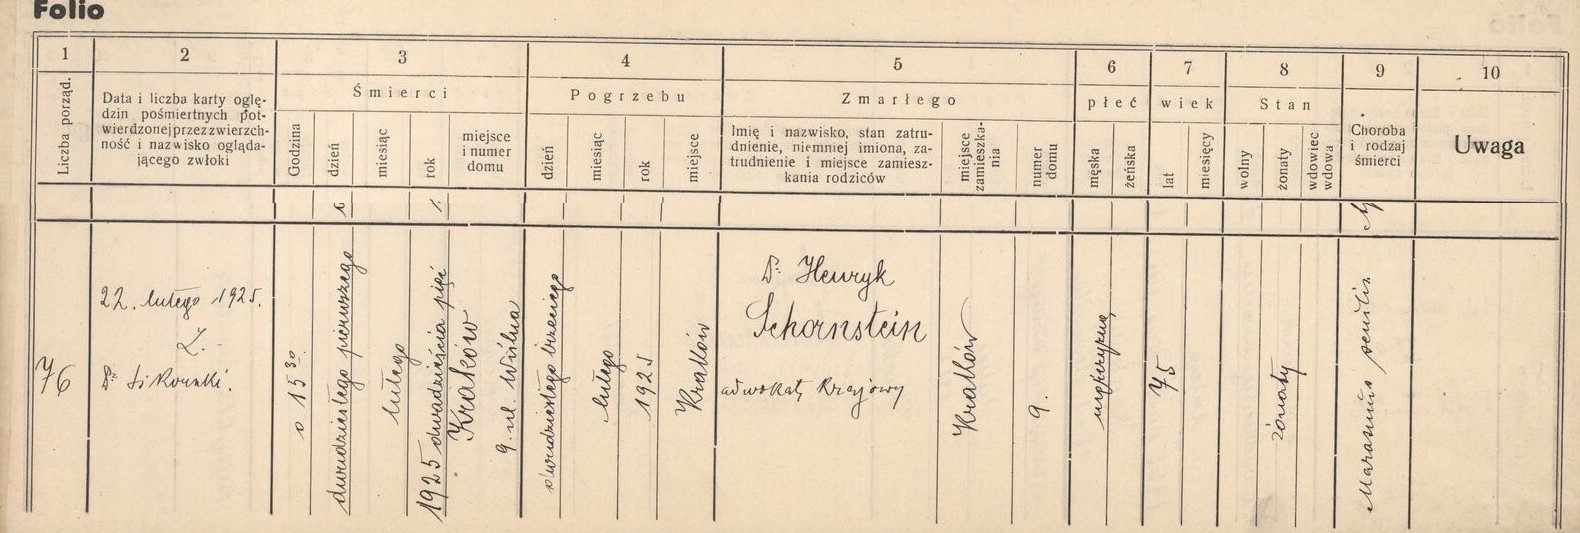 Folio
1
2
3
4
5
6
7
8
9
10
Liczba porząd.
Data i liczba karty oglę-
dzin pośmiertnych pot-
wierdzonej przez zwierzch-
ność i nazwisko ogląda-
jącego zwłoki
Śmierci
Godzina
dzień
miesiąc
rok
miejsce
i numer
domu
Pogrzebu
dzień
miesiąc
rok
miejsce
Zmarłego
Imię i nazwisko, stan zatru-
dnienie, niemniej imiona, za-
trudnienie i miejsce zamiesz-
kania rodziców
miejsce
zamieszka-
nia
numer
domu
płeć
męska
żeńska
wiek
lat
miesięcy
Stan
wolny
żonaty
wdowiec
wdowa
Choroba
i rodzaj
śmierci
Uwaga
76
22. lutego 1925.
L.
Dr
o 15 30
dwudziestego pierwszego
lutego
1925 dwadzieścia pięć
Kraków
9. ul. Wiślna
dwudziestego trzeciego
lutego
1925
Kraków
Dr Henryk
Schornstein
adwokat krajowy
Kraków
9.
mężczyzna
75
żonaty
Marasmus senilis